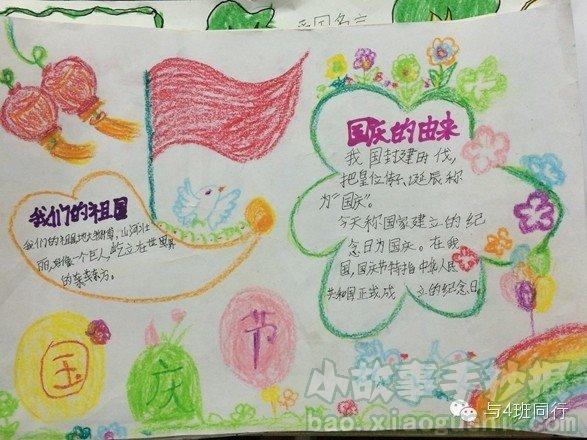 国名言
我们的祖国
我们的祖国地大物博，山河壮
丽,好像一个巨人,屹立在世界
的东方。
国庆的由来
我国封建时代，
把皇位、诞辰称
为“国庆”。
今天称国家建立的纪
念日为国庆。在我
国，国庆节特指中华人民
共和国正式成立的纪念日。
国庆节
小故事手抄报
bao.xiaogushi
与4班同行